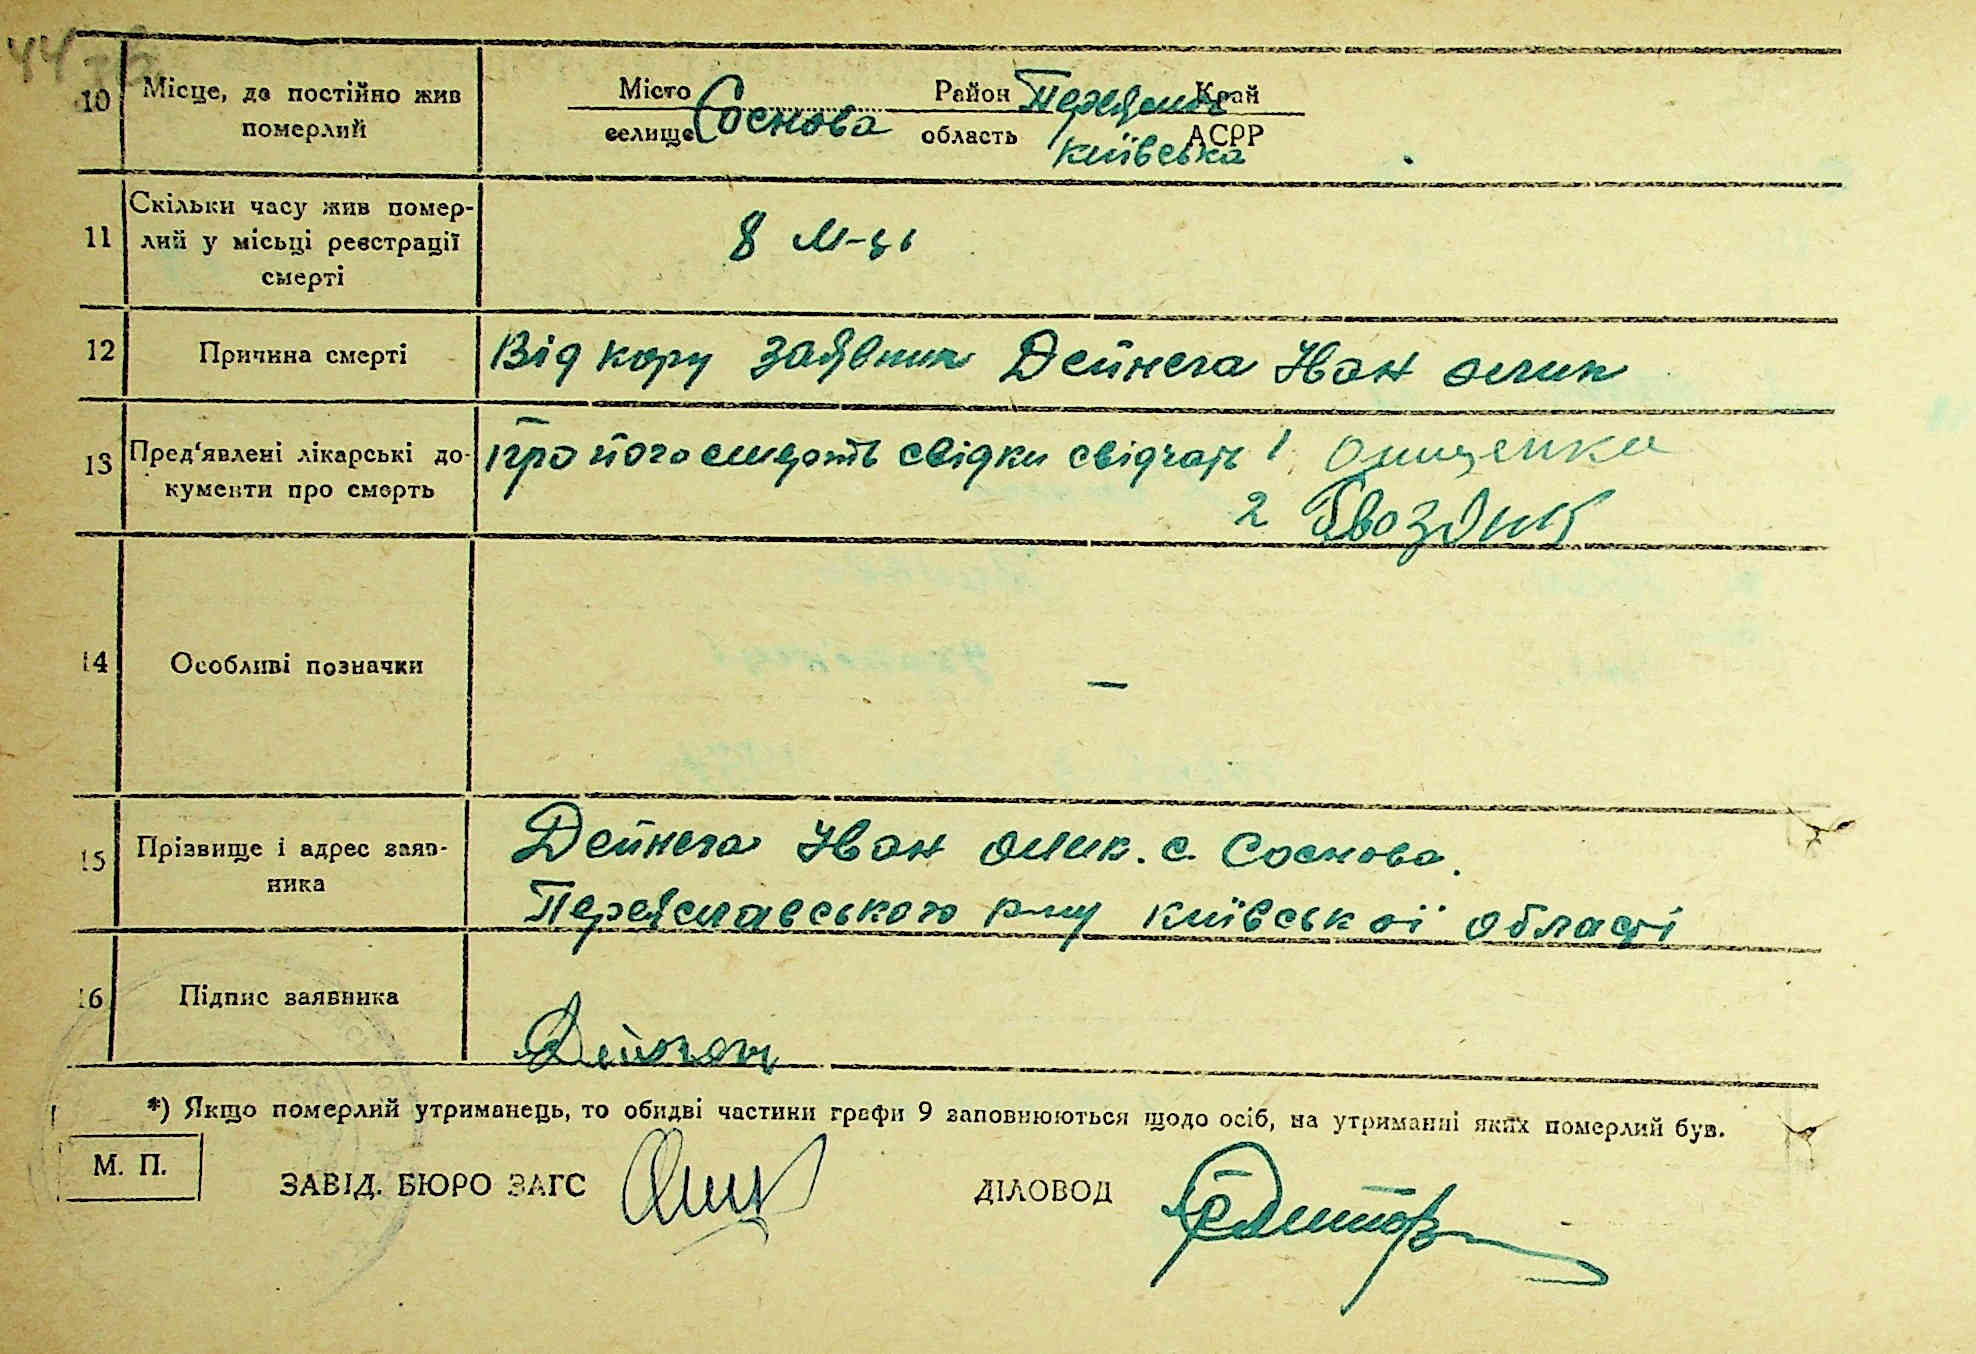 44
10 Місце, де постійно жив Місто Район Переяслав Край
померлий селище Соснова область Київська АСРР
11 Скільки часу жив помер-
лий у місьці реєстрації 8 м-ці
смерті
12 Причина смерті Від кору заявник Дейнега Іван Олик
13 Пред'явлені лікарські до- про його смерть свідки свідчать 1 Онищенко
кументи про смерть 2 Гвоздик
14 Особливі позначки —
15 Прізвище і адрес заяв- Дейнега Іван Олик. с. Соснова.
ника Переяславського р-ну Київської області
16 Підпис заявника Дейнега
*) Якщо померлий утриманець, то обидві частини графи 9 заповнюються щодо осіб, на утриманні яких померлий був.
М. П.
ЗАВІД. БЮРО ЗАГС ДІЛОВОД